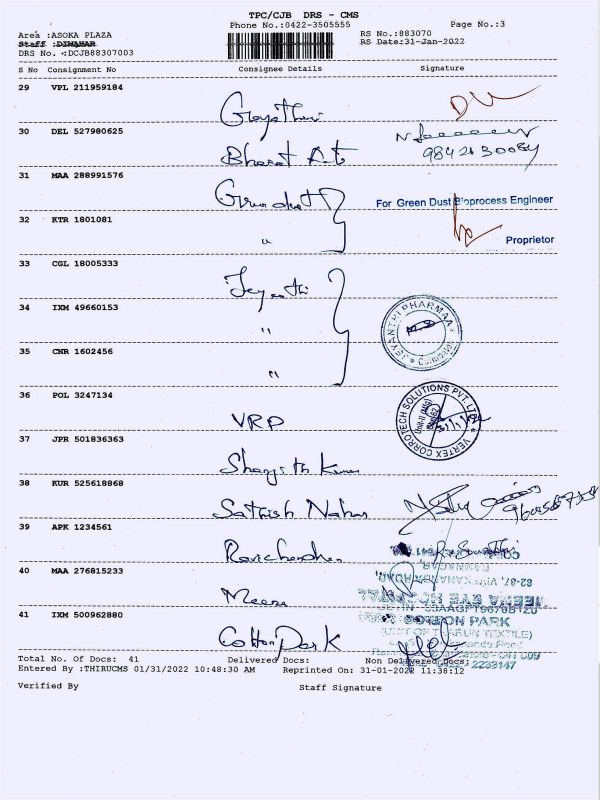 TPC/CJB DRS - CMS
Phone No.:0422-3505555
Page No.:3
Area :ASOKA PLAZA
RS No.:883070
Staff :DIWAHAR
RS Date:31-Jan-2022
DRS No. :DCJB88307003
S No Consignment No Consignee Details Signature
29 VPL 211959184
Gayathri
30 DEL 527980625
Bharat
31 MAA 288991576
Green dust
For Green Dust Bioprocess Engineer
32 KTR 1801081
"
Proprietor
33 CGL 18005333
Jeyanthi
34 IXM 49660153
"
JEYANTHI PHARMAA
35 CNR 1602456
"
36 POL 3247134
VRP
VERTEX CORROTECH SOLUTIONS PVT. LTD
37 JPR 501836363
38 KUR 525618868
Sathish
39 APK 1234561
Ravichandran
40 MAA 276815233
Meena
COTTON PARK
41 IXM 500962880
Cotton Park
Total No. Of Docs: 41 Delivered Docs: Non Delivered Docs:
Entered By :THIRUCMS 01/31/2022 10:48:30 AM Reprinted On: 31-01-2022 11:38:12
Verified By Staff Signature